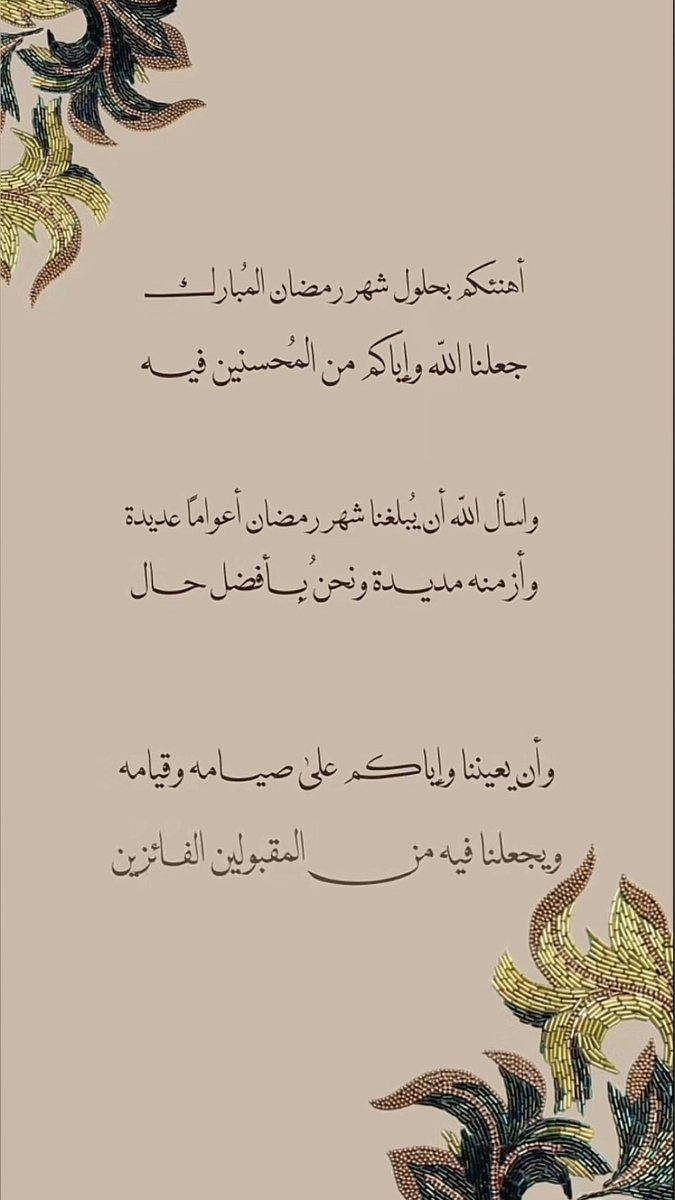 أهنئكم بحلول شهر رمضان المُبارك
جعلنا اللّه وإياكم من المُحسنين فيه
واسأل اللّه أن يُبلغنا شهر رمضان أعوامًا عديدة
وأزمنه مديدة ونحنُ بأفضل حال
وأن يعيننا وإياكم علىٰ صيامه وقيامه
ويجعلنا فيه من المقبولين الفائزين